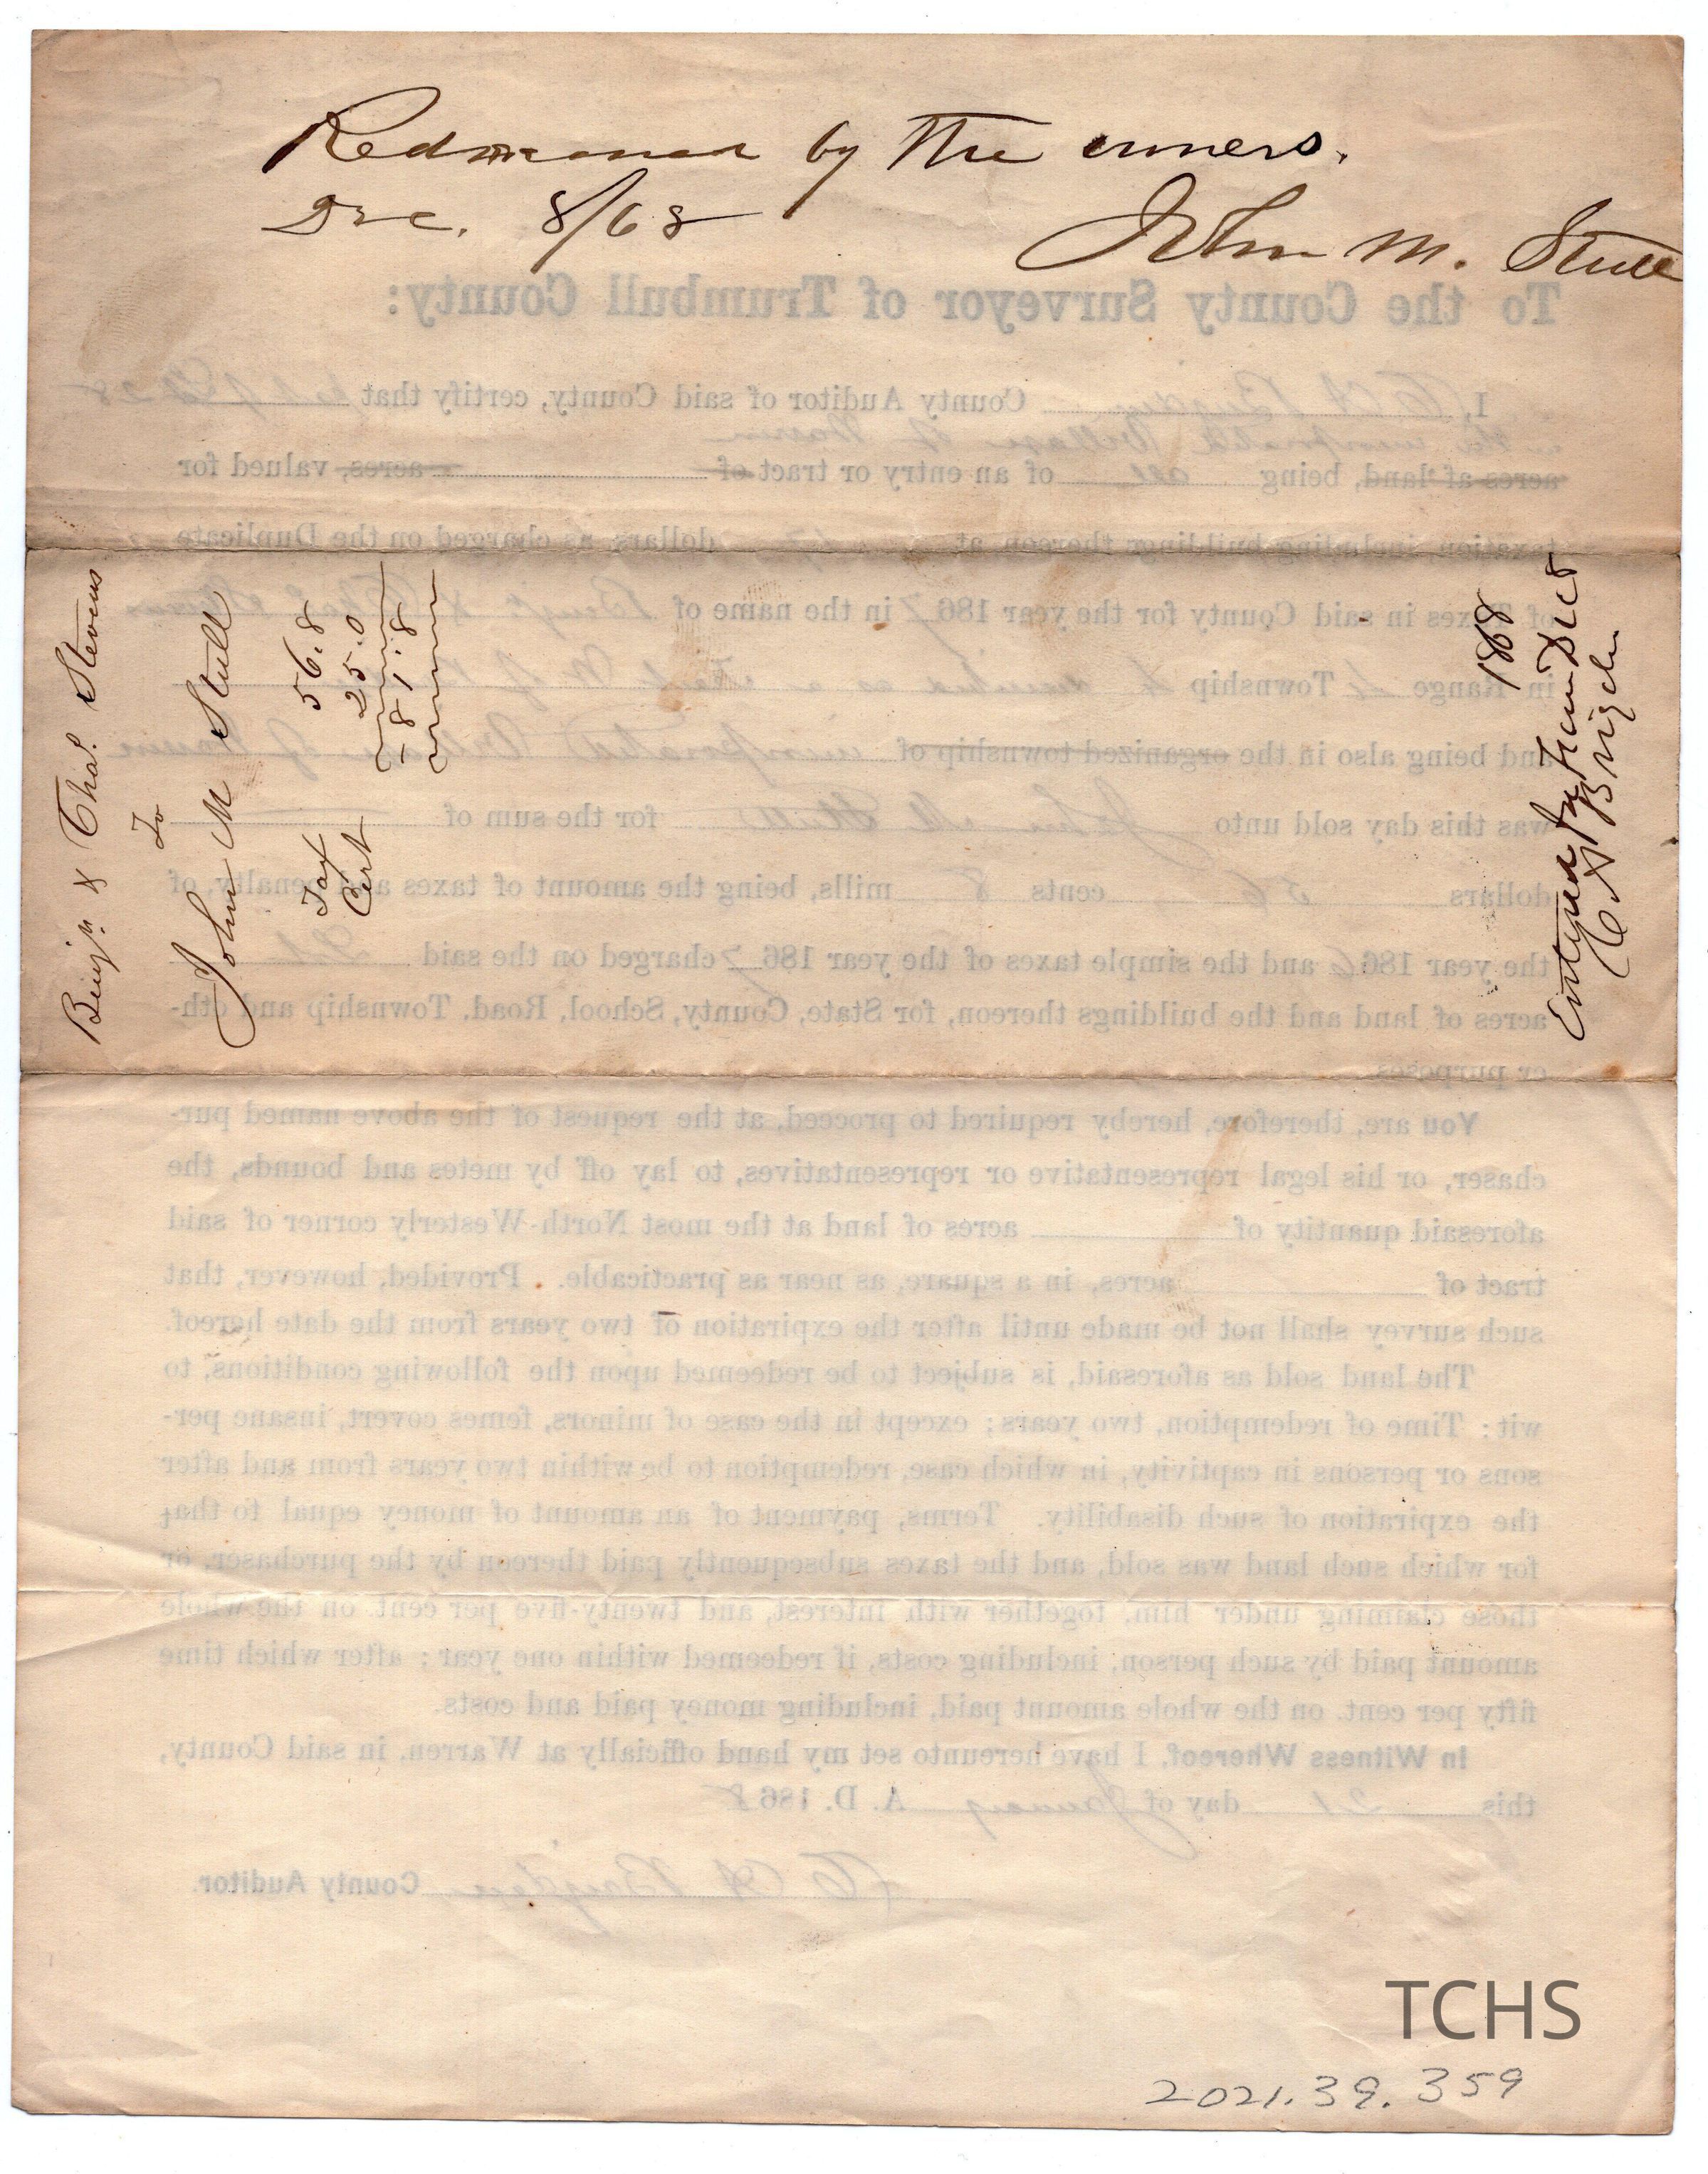 Redeemed by the owners.
Dec. 8/68 John M. Stull
Benjn. & Chas. Stevens
To
John M Stull
Tax 56.8
Cert 25.0
81.8
1868
Dec 8
To the County Surveyor of Trumbull County:
I, County Auditor of said County, certify that
in the incorporated Village of Warren
acres of land, being all of an entry or tract of acres, valued for
taxation, including buildings thereon, at dollars, as charged on the Duplicate
of Taxes in said County for the year 1867 in the name of Benjn & Chas Stevens
in Range 4 Township 4
and being also in the organized township of incorporated Village of Warren
was this day sold unto John M Stull for the sum of
dollars 56 cents 8 mills, being the amount of taxes and penalty, of
the year 1866 and the simple taxes of the year 1867 charged on the said Lot
acres of land and the buildings thereon, for State, County, School, Road, Township and oth-
er purposes.
You are, therefore, hereby required to proceed, at the request of the above named pur-
chaser, or his legal representative or representatives, to lay off by metes and bounds, the
aforesaid quantity of acres of land at the most North-Westerly corner of said
tract of acres, in a square, as near as practicable. Provided, however, that
such survey shall not be made until after the expiration of two years from the date hereof.
The land sold as aforesaid, is subject to be redeemed upon the following conditions, to
wit: Time of redemption, two years; except in the case of minors, femes covert, insane per-
sons or persons in captivity, in which case, redemption to be within two years from and after
the expiration of such disability. Terms, payment of an amount of money equal to that
for which such land was sold, and the taxes subsequently paid thereon by the purchaser, or
those claiming under him, together with interest, and twenty-five per cent on the whole
amount paid by such person, including costs, if redeemed within one year; after which time
fifty per cent. on the whole amount paid, including money paid and costs.
In Witness Whereof, I have hereunto set my hand officially at Warren, in said County,
this 21 day of January A. D. 1868
County Auditor.
TCHS
2021.39.359